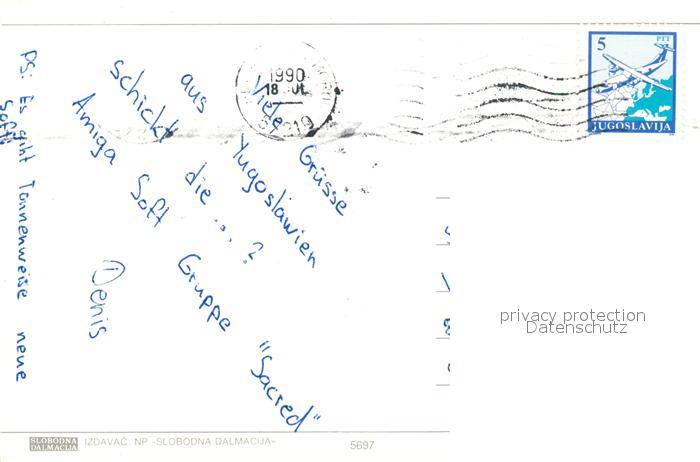 Viele Grüsse
aus Yugoslawien
schickt die...?
Amiga Soft Gruppe "Sacred"
Denis
PS: Es giht Tonnenweise neue
Soft!
1990
18
5
PTT
JUGOSLAVIJA
privacy protection
Datenschutz
SLOBODNA
DALMACIJA
IZDAVAČ: NP -SLOBODNA DALMACIJA-
5697